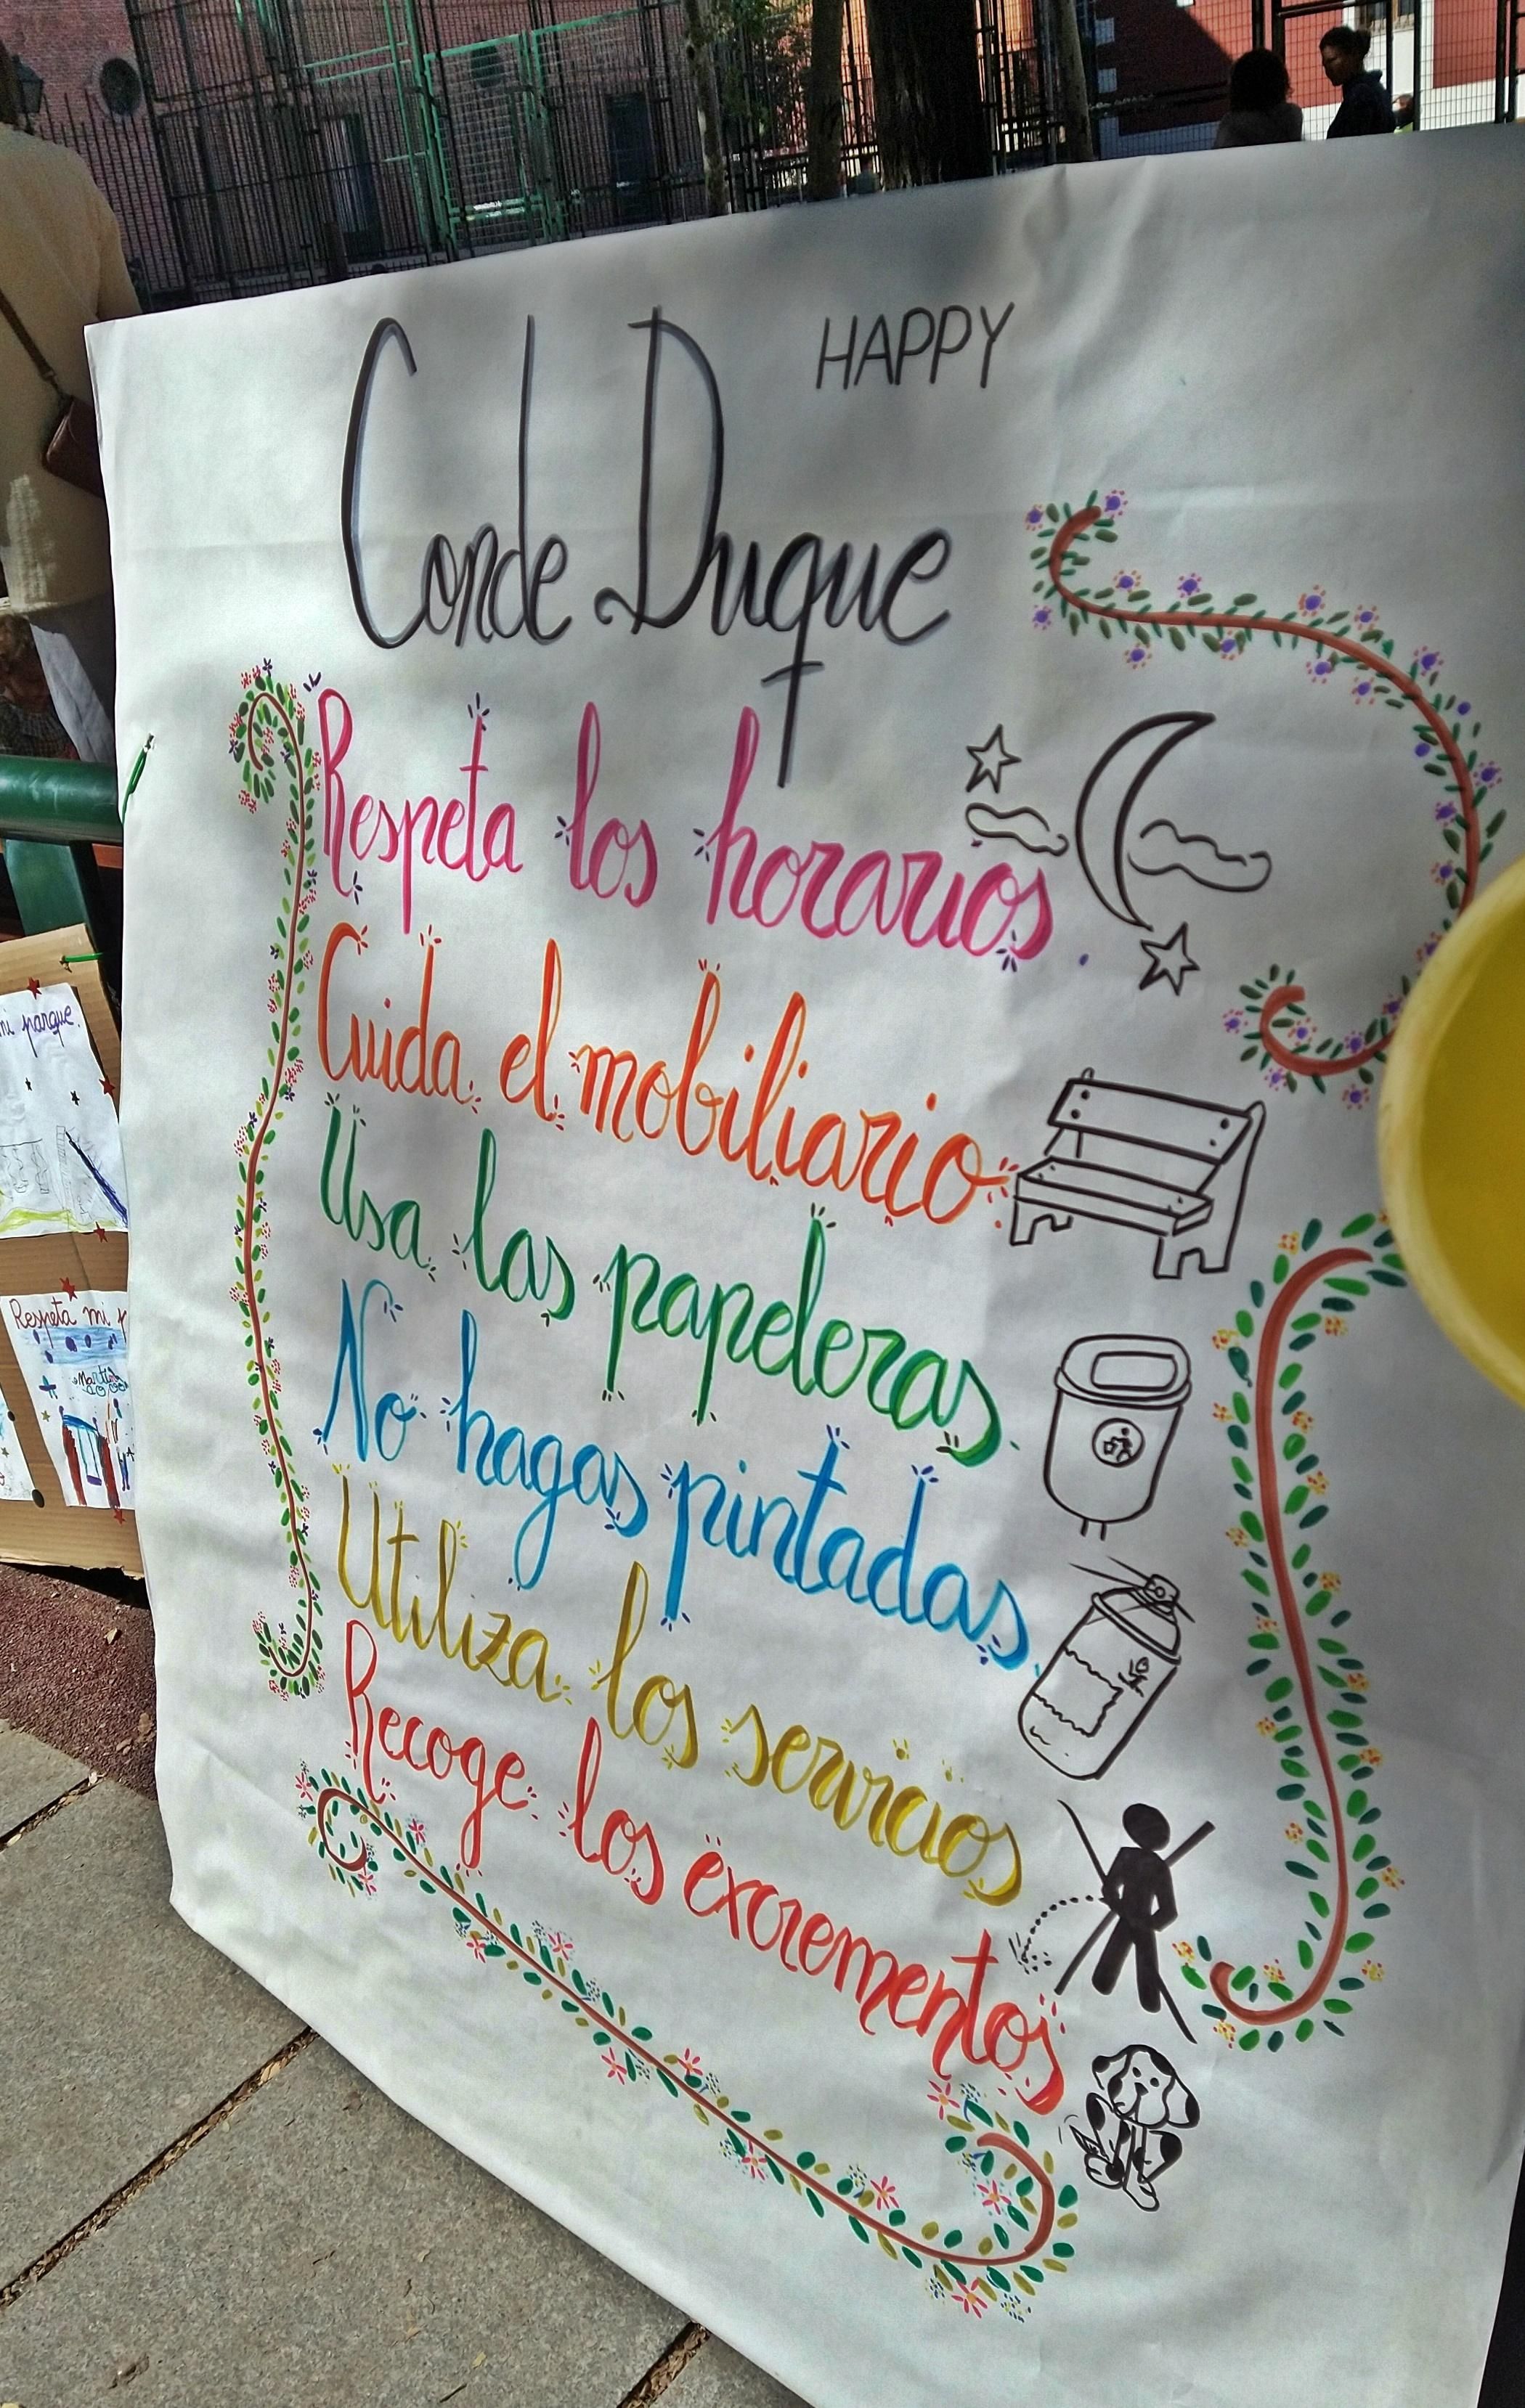 HAPPY
Conde Duque
Respeta los horarios.
Cuida el mobiliario.
Usa las papeleras.
No hagas pintadas.
Utiliza los servicios
Recoge los excrementos
mi parque.
Respeta mi